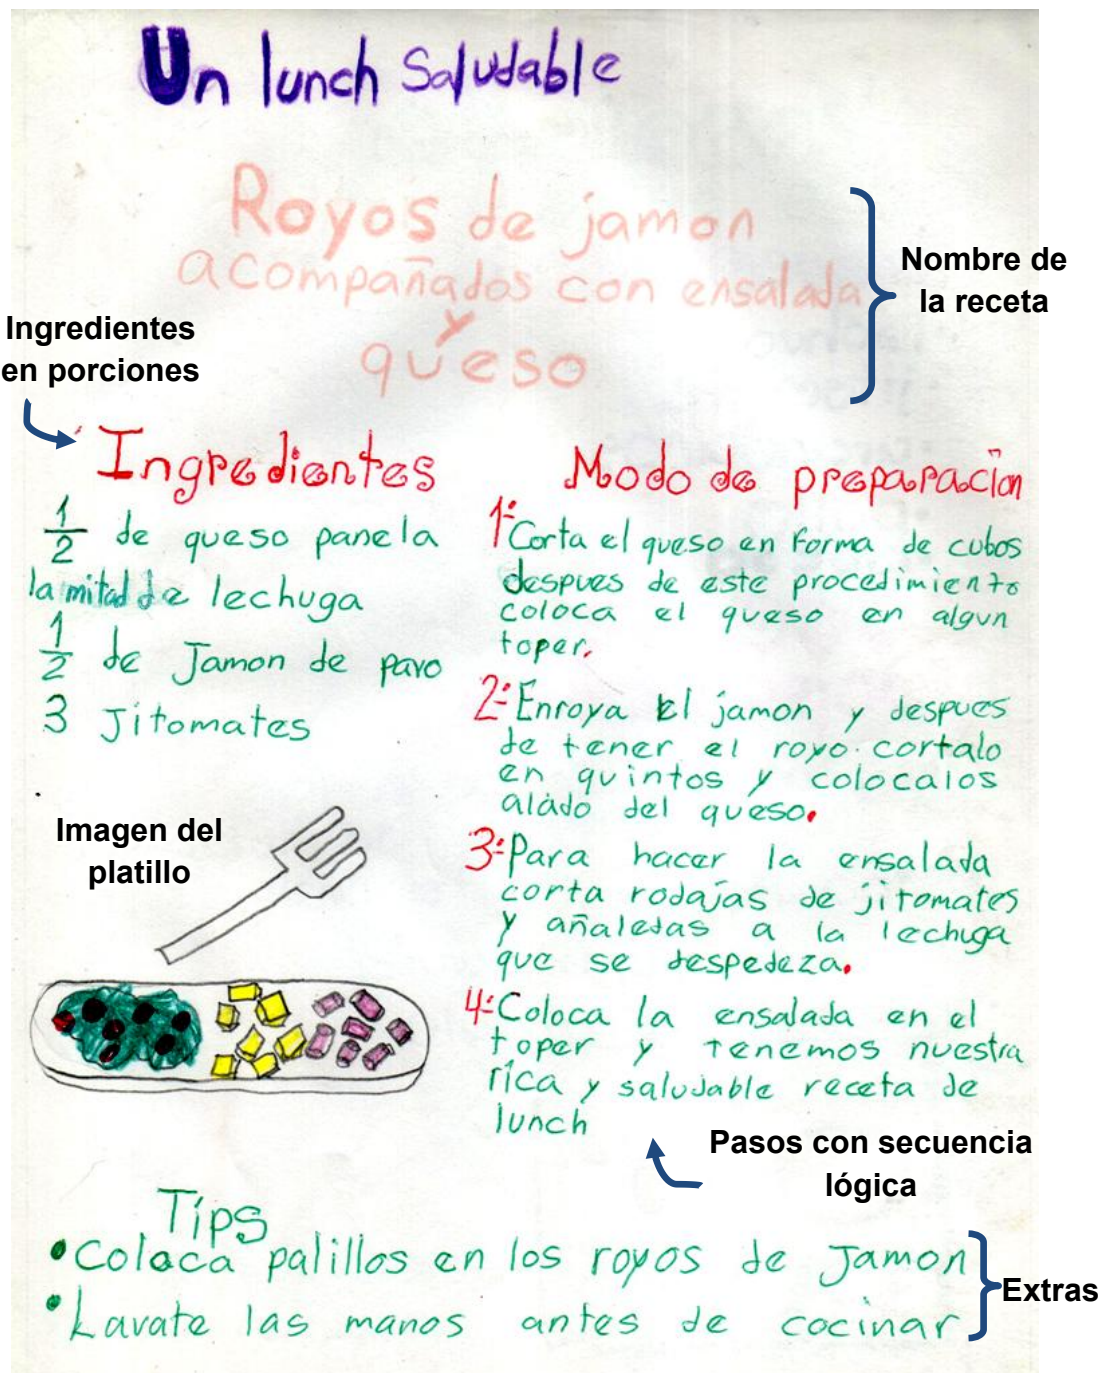 Un lunch Saludable
Royos de jamon
acompañados con ensalada
y
queso
Nombre de
la receta
Ingredientes
en porciones
Ingredientes
1/2 de queso panela
la mitad de lechuga
1/2 de Jamon de pavo
3 Jitomates
Imagen del
platillo
Modo de preparación
1º Corta el queso en forma de cubos
despues de este procedimiento
coloca el queso en algun
toper.
2º Enroya el jamon y despues
de tener el royo cortalo
en quintos y colocalos
alado del queso.
3º Para hacer la ensalada
corta rodajas de jitomates
y añaledas a la lechuga
que se despedeza.
4º Coloca la ensalada en el
toper y tenemos nuestra
rica y saludable receta de
lunch
Pasos con secuencia
lógica
Tips
• Coloca palillos en los royos de Jamon
• Lavate las manos antes de cocinar
Extras